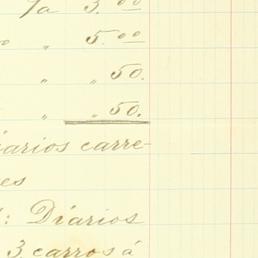 7a 3.00
o " 5.00
" " 50.
" " 50.
iarios carre-
es
: Diarios
3 carros á